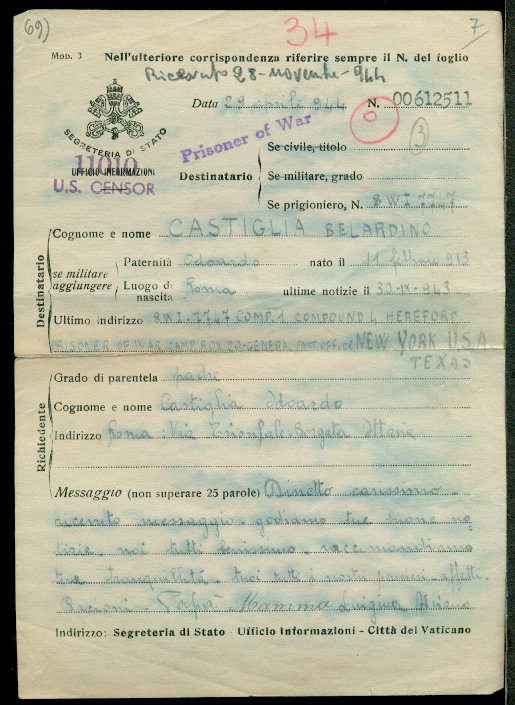 69)
34
7
Mod. 3 Nell'ulteriore corrispondenza riferire sempre il N. del foglio
Ricevuto 28-novembre-944
Data 29 aprile 944 N. 00612511
SEGRETERIA DI STATO
UFFICIO INFORMAZIONI
11010
U.S. CENSOR
Prisoner of War
0
3
Destinatario
Se civile, titolo
Se militare, grado
Se prigioniero, N. 8WI 7747
Destinatario
Cognome e nome CASTIGLIA BELARDINO
se militare aggiungere
Paternità Edoardo nato il 11 febbraio 913
Luogo di nascita Roma ultime notizie il 30-IX-943
Ultimo indirizzo 8WI-7747 COMP.1 COMPOUND 4 HEREFORD
PRISONER OF WAR CAMP BOX 20-GENERAL POST OFFICE NEW YORK U.S.A.
TEXAS
Richiedente
Grado di parentela padre
Cognome e nome Castiglia Edoardo
Indirizzo Roma Via Trionfale Borgata
Messaggio (non superare 25 parole) Dinotto carissimo -
ricevuto messaggio - godiamo tue buone no
tizie - noi tutti benissimo - raccomandiamo
tua tranquillità - tuoi tutti i nostri pensieri affetti -
Bacioni - Papà Mamma Luigina
Indirizzo: Segreteria di Stato - Ufficio Informazioni - Città del Vaticano